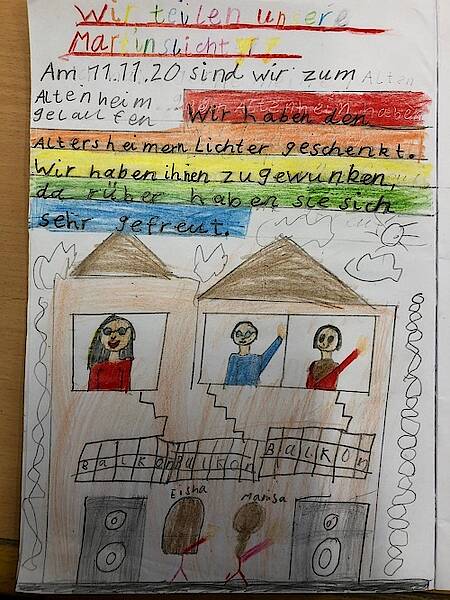 Wir teilen unsere
Martinslicht!!!
Am 11.11.20 sind wir zum Alten
Altenheim
gelaufen Wir haben den
Altersheimern Lichter geschenkt.
Wir haben ihnen zugewunken,
da rüber haben sie sich
sehr gefreut.
Balkon Balkon Balkon
Eisha Marisa